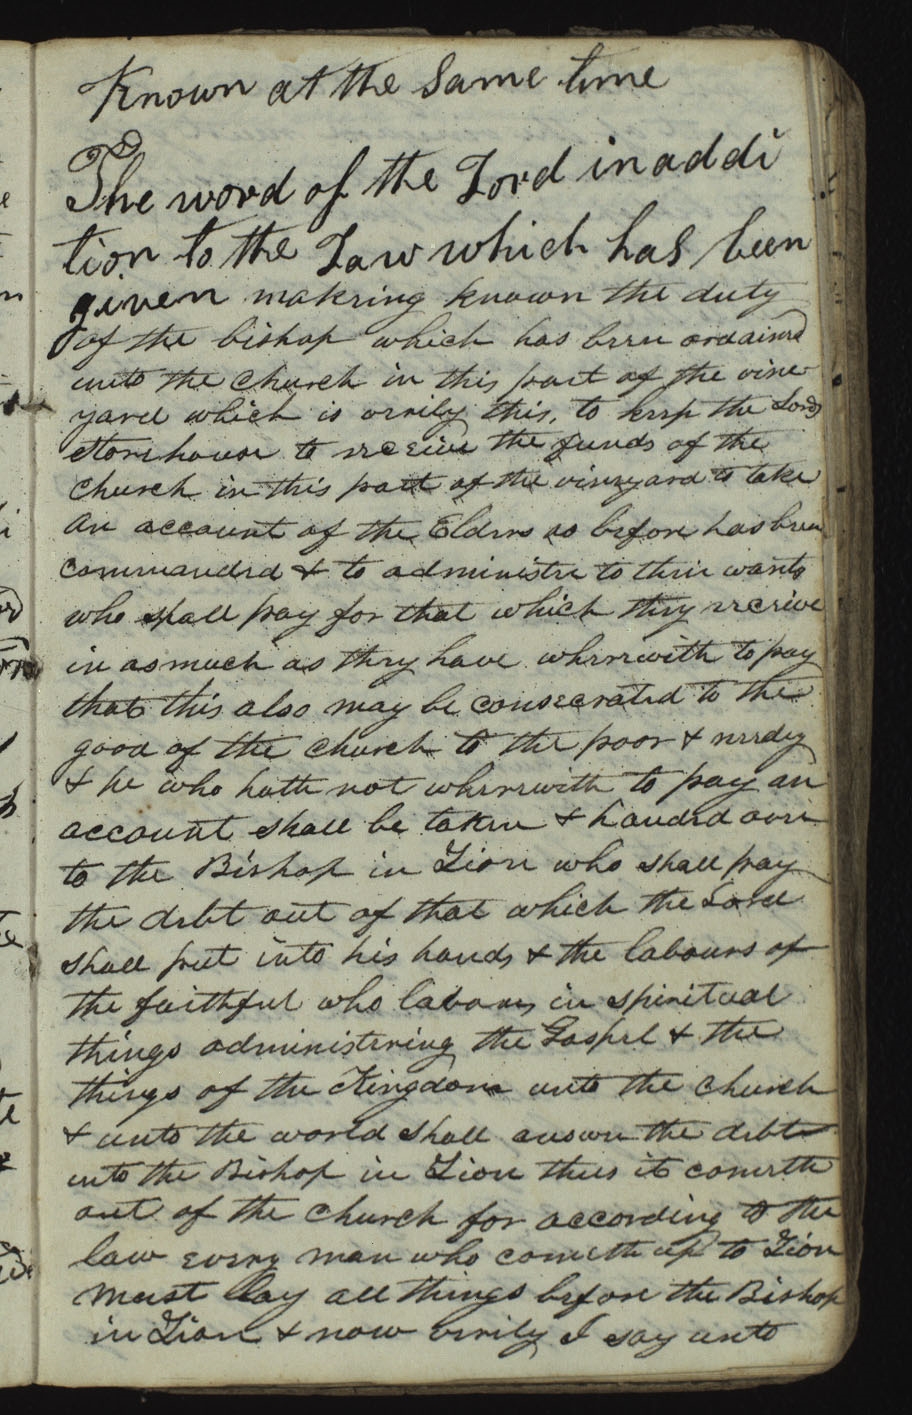 Known at the same time
The word of the Lord in addi
tion to the Law which has been
given makeing known the duty
of the bishop which has been ordained
unto the Church in this part of the vine
yard which is verily this, to keep the Lords
Storehouse to receive the funds of the
Church in this part of the vineyard to take
an account of the Elders as before has been
commanded & to administer to their wants
who shall pay for that which they receive
in asmuch as they have wherewith to pay
that this also may be consecrated to the
good of the church to the poor & needy
& he who hath not wherewith to pay an
account shall be taken & handed over
to the Bishop in Zion who shall pay
the debt out of that which the Lord
shall put into his hands & the labours of
the faithful who labours in spiritual
things administering the Gospel & the
things of the Kingdom unto the church
& unto the world shall answer the debt
unto the Bishop in Zion thus it cometh
out of the church for according to the
law every man who cometh up to Zion
must lay all things before the Bishop
in Zion & now verily I say unto